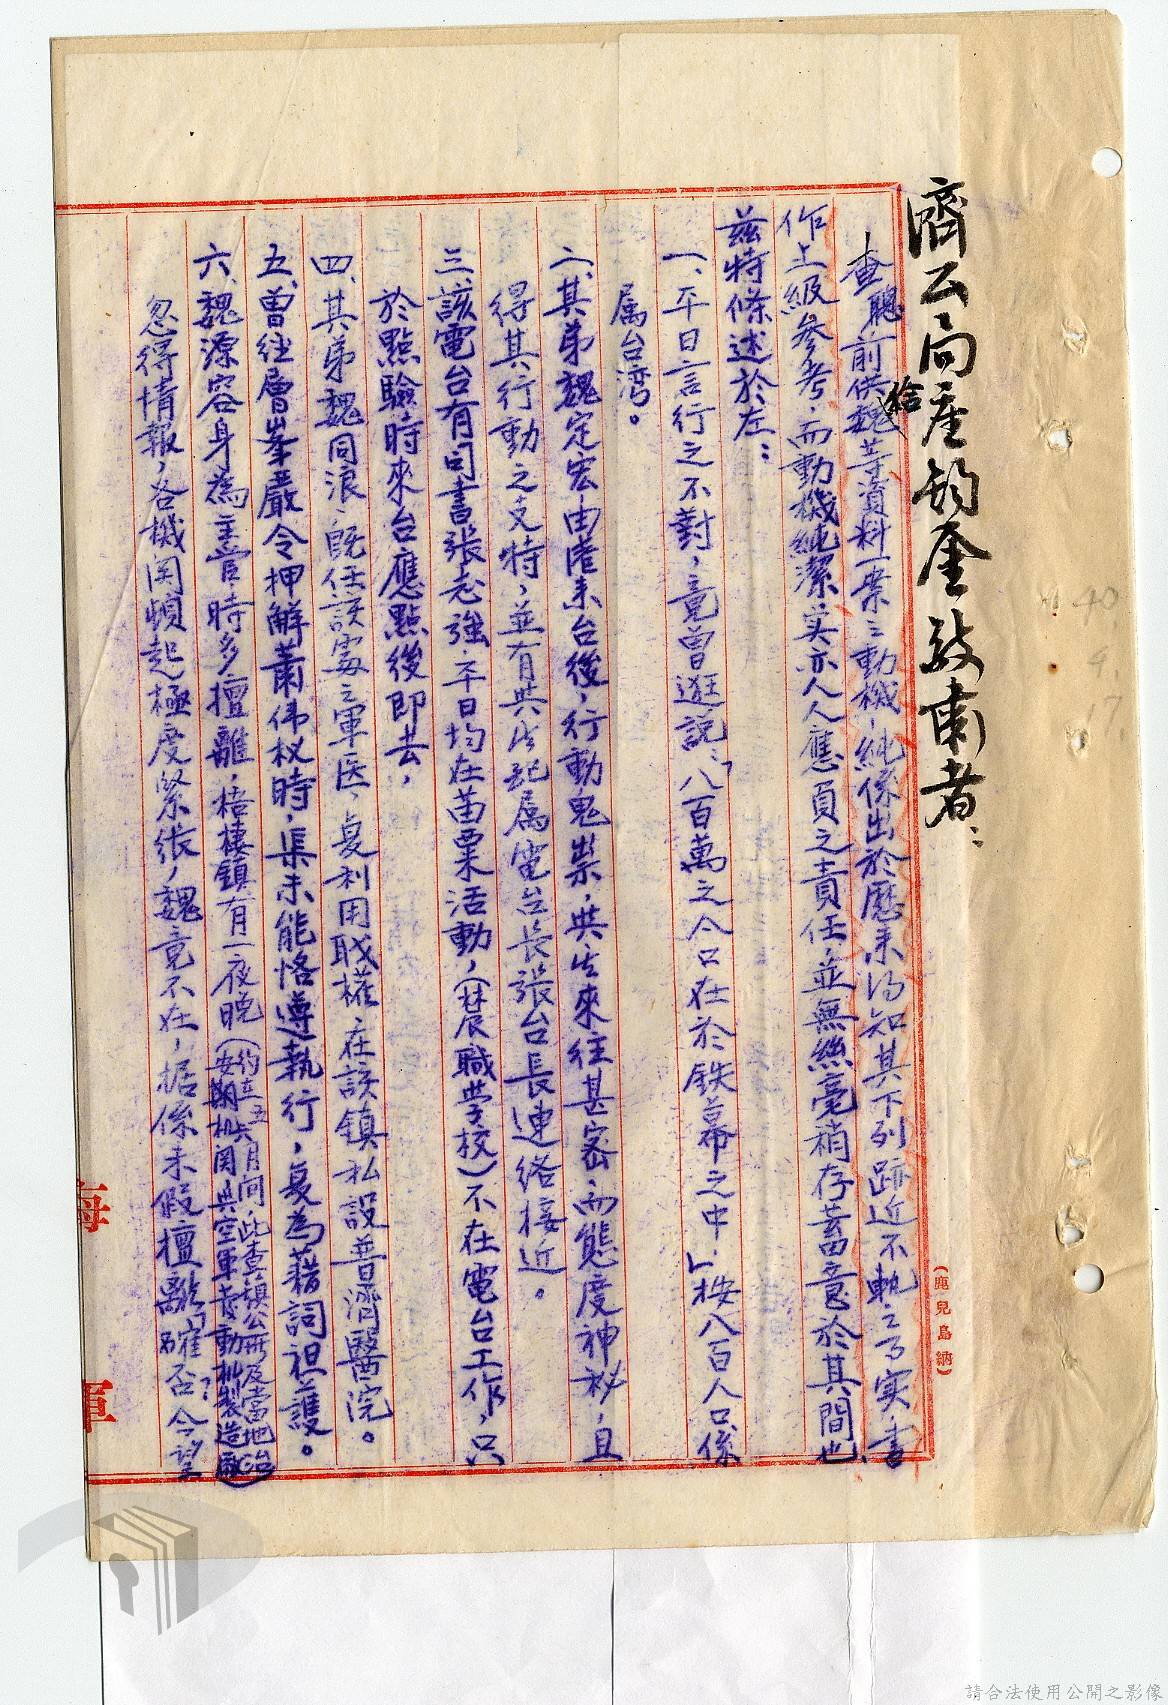 濟公局座鈞鑒敬肅者：
查聽前供給魏等資料一案之動機，純係出於歷來得知其下列跡近不軌之事實，書
作上級參考，而動機純潔，実亦人人應負之責任，並無絲毫稍存蓄意於其間也，
茲特條述於左：
一、平日言行之不對，竟曾逛說：「八百萬之人口在於鉄幕之中，」按八百人口係
属台湾。
二、其弟魏定宏由陸来台後，行動鬼祟，與生來往甚密，而態度神祕，且
得其行動之支持，並有共生起属電台長張台長連絡接近。
三、該電台有司書張志強，平日均在苗栗活動，（農職学校）不在電台工作，只
於點驗時來台應點後即去，
四、其弟魏同浪，既任該处之軍医，复利用职權，在該鎮私設普濟醫院。
五、曾經層峯嚴令押解蕭伟权時，渠未能恪遵執行，复為藉詞袒護。
六、魏源容身為主官時多擅離，梧棲鎮有一夜晚（約在五六月间，此查鎮公所及當地治
安機関與空軍發動机製造廠）
忽得情報，各機関頓起極度緊張，魏竟不在，据係未假擅離，確否？今望
海軍
（鹿兒島納）
40.
9.
17.
請合法使用公開之影像